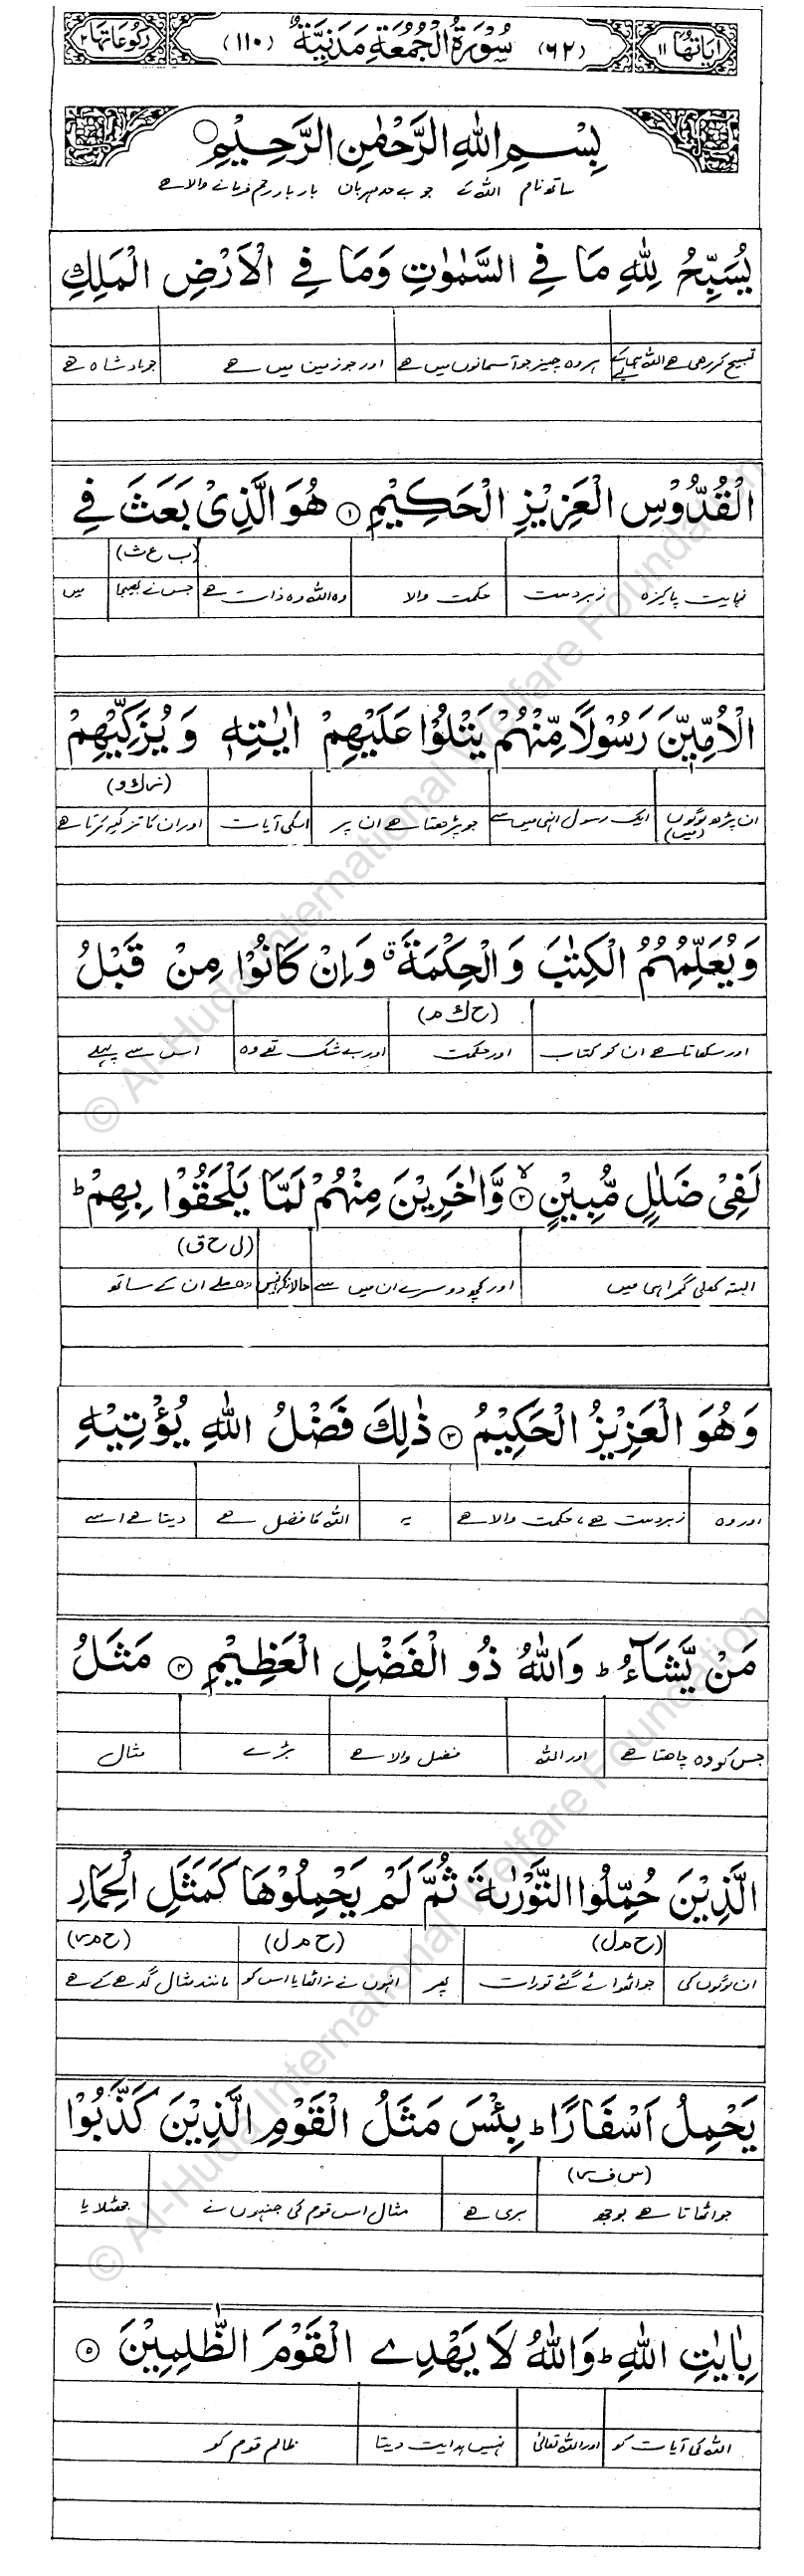 اٰیاتها ١١ (٦٢) سُوْرَةُ الْجُمُعَةِ مَدَنِیَّةٌ (١١٠) رکوعاتها ٢
بِسْمِ اللّٰهِ الرَّحْمٰنِ الرَّحِیْمِ
ساتھ نام اللہ کے جو بے حد مہربان بار بار رحم فرمانے والا ہے
یُسَبِّحُ لِلّٰهِ مَا فِی السَّمٰوٰتِ وَمَا فِی الْاَرْضِ الْمَلِكِ
تسبیح کر رہی ہے اللہ ہی کے لیے ہر وہ چیز جو آسمانوں میں ہے اور جو زمین میں ہے جو بادشاہ ہے
الْقُدُّوْسِ الْعَزِیْزِ الْحَكِیْمِ ١ هُوَ الَّذِیْ بَعَثَ فِی
(ب ع ث)
نہایت پاکیزہ زبردست حکمت والا وہ اللہ وہ ذات ہے جس نے بھیجا میں
الْاُمِّیّٖنَ رَسُوْلًا مِّنْهُمْ یَتْلُوْا عَلَیْهِمْ اٰیٰتِهٖ وَ یُزَكِّیْهِمْ
(ز ک و)
ان پڑھ لوگوں (میں) ایک رسول انہی میں سے جو پڑھتا ہے ان پر اسکی آیات اور ان کا تزکیہ کرتا ہے
وَیُعَلِّمُهُمُ الْكِتٰبَ وَالْحِكْمَةَ ۗ وَاِنْ كَانُوْا مِنْ قَبْلُ
(ح ک م)
اور سکھاتا ہے ان کو کتاب اور حکمت اور بے شک تھے وہ اس سے پہلے
لَفِیْ ضَلٰلٍ مُّبِیْنٍ ٢ وَّاٰخَرِیْنَ مِنْهُمْ لَمَّا یَلْحَقُوْا بِهِمْ ط
(ل ح ق)
البتہ کھلی گمراہی میں اور کچھ دوسرے ان میں سے حالانکہ نہیں وہ ملے ان کے ساتھ
وَهُوَ الْعَزِیْزُ الْحَكِیْمُ ٣ ذٰلِكَ فَضْلُ اللّٰهِ یُؤْتِیْهِ
اور وہ زبردست ہے، حکمت والا ہے یہ اللہ کا فضل ہے دیتا ہے اسے
مَنْ یَّشَآءُ ط وَاللّٰهُ ذُو الْفَضْلِ الْعَظِیْمِ ٤ مَثَلُ
جس کو وہ چاہتا ہے اور اللہ فضل والا ہے بڑے مثال
الَّذِیْنَ حُمِّلُوا التَّوْرٰىةَ ثُمَّ لَمْ یَحْمِلُوْهَا كَمَثَلِ الْحِمَارِ
(ح م ل) (ح م ل) (ح م ر)
ان لوگوں کی جو اٹھوائے گئے تورات پھر انہوں نے نہ اٹھایا اس کو مانند مثال گدھے کے ہے
یَحْمِلُ اَسْفَارًا ط بِئْسَ مَثَلُ الْقَوْمِ الَّذِیْنَ كَذَّبُوْا
(س ف ر)
جو اٹھاتا ہے بوجھ بری ہے مثال اس قوم کی جنہوں نے جھٹلایا
بِاٰیٰتِ اللّٰهِ ط وَاللّٰهُ لَا یَهْدِی الْقَوْمَ الظّٰلِمِیْنَ ٥
اللہ کی آیات کو اور اللہ تعالیٰ نہیں ہدایت دیتا ظالم قوم کو
© Al-Huda International Welfare Foundation
© Al-Huda International Welfare Foundation